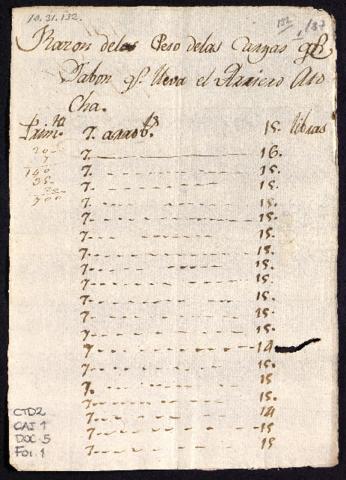 10.31.132. 132 1/87
Razon de los Peso de las Cargas de
Jabon q.e lleva el Arriero Ato
cha.
Primte 7. arrobs 15. libras
20 7 16.
7 7 15.
140 7 15.
35 7 15.
7 15.
300 7 15.
7 15.
7 15.
7 15.
7 15.
7 15.
7 15.
7 14
7 15.
7. 15
7 15.
7 14
CTD2 7 15
CAJ 1 7 15
DOC-5
FOI.1